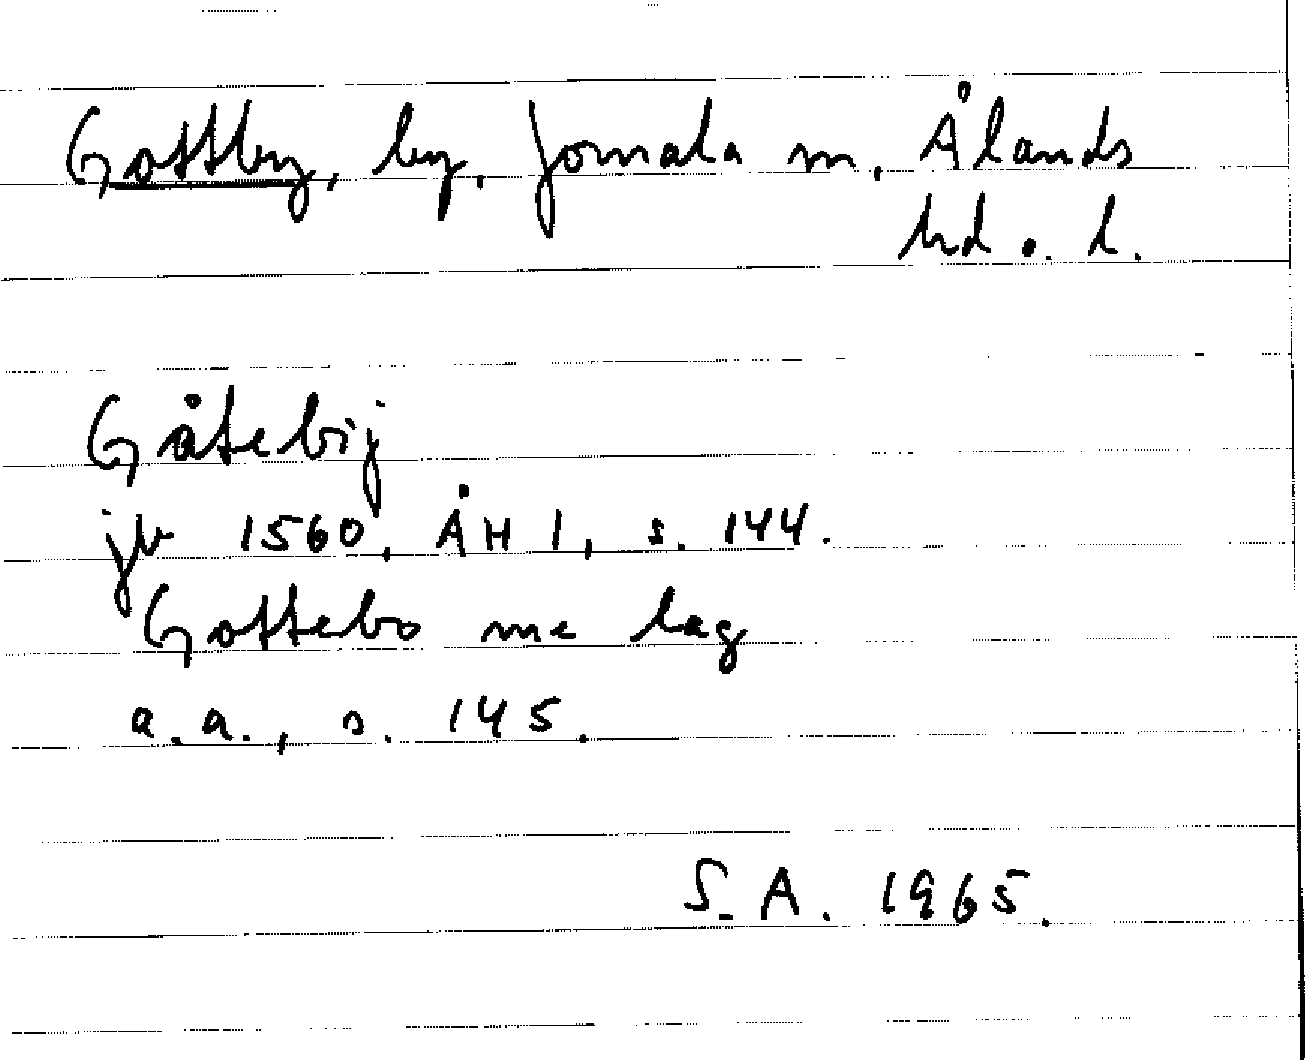 Gottby, by, Jomala sn, Ålands
hd o. l.
Gåtebij
jb 1560, ÅH 1, s. 144.
Gottebo me lag
a.a., s. 145.
S.A. 1965.